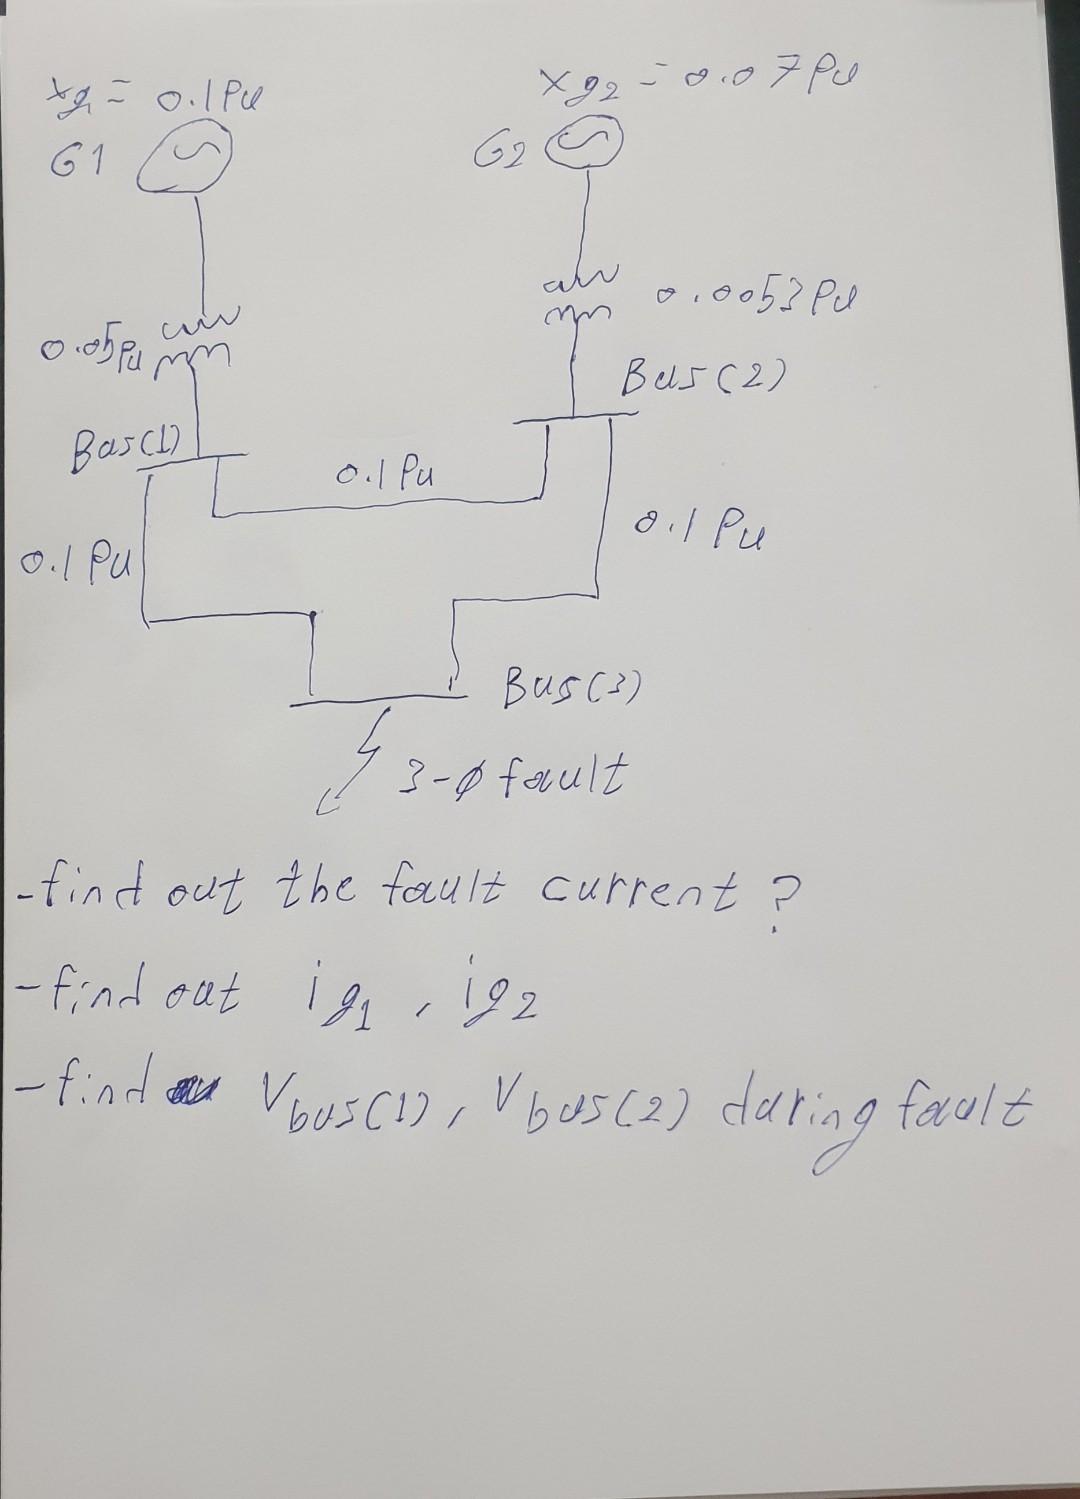 xg1 = 0.1 Pu
xg2 = 0.07 Pu
G1
G2
0.0053 Pu
0.05 Pu
Bus(2)
Bus(1)
0.1 Pu
0.1 Pu
0.1 Pu
Bus(3)
3-φ fault
-find out the fault current?
-find out ig1, ig2
-find Vbus(1), Vbus(2) during fault